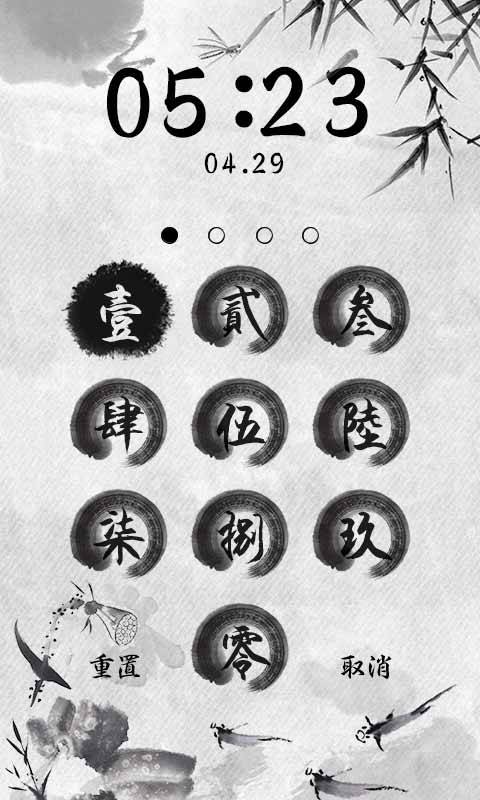 05:23
04.29
壹 貳 叁
肆 伍 陸
柒 捌 玖
重置 零 取消